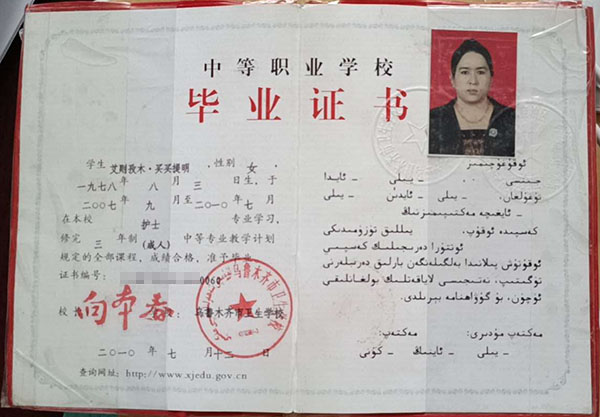 中等职业学校
毕业证书
学生 艾则孜木·买买提明,性别 女,
一九七八年 八 月 三 日生,于
二〇〇七年 九 月至二〇一〇年 七 月
在本校 护士 专业学习,
修完 三 年制(成人)中等专业教学计划
规定的全部课程,成绩合格,准予毕业
证书编号: 0068
校 向本春 : 乌鲁木齐市卫生学校
二〇一〇 年 七 月 十二 日
查询网址:http://www.xjedu.gov.cn
乌鲁木齐市卫生学校
ئوقۇغۇچىمىز
جىنسى ـ يىلى ـ ئايدا
تۇغۇلغان. ـ يىلى ـ ئايدىن ـ يىلى
ـ ئايغىچە مەكتىپىمىزنىڭ
كەسپىدە ئوقۇپ، يىللىق تۈزۈمدىكى
ئوتتۇرا دەرىجىلىك كەسپىي
ئوقۇتۇش پىلانىدا بەلگىلەنگەن بارلىق دەرسلەرنى
تۈگىتىپ، نەتىجىسى لاياقەتلىك بولغانلىقى
ئۈچۈن، بۇ گۇۋاھنامە بېرىلدى.
مەكتەپ مۇدىرى: مەكتەپ:
ـ يىلى ـ ئاينىڭ ـ كۈنى